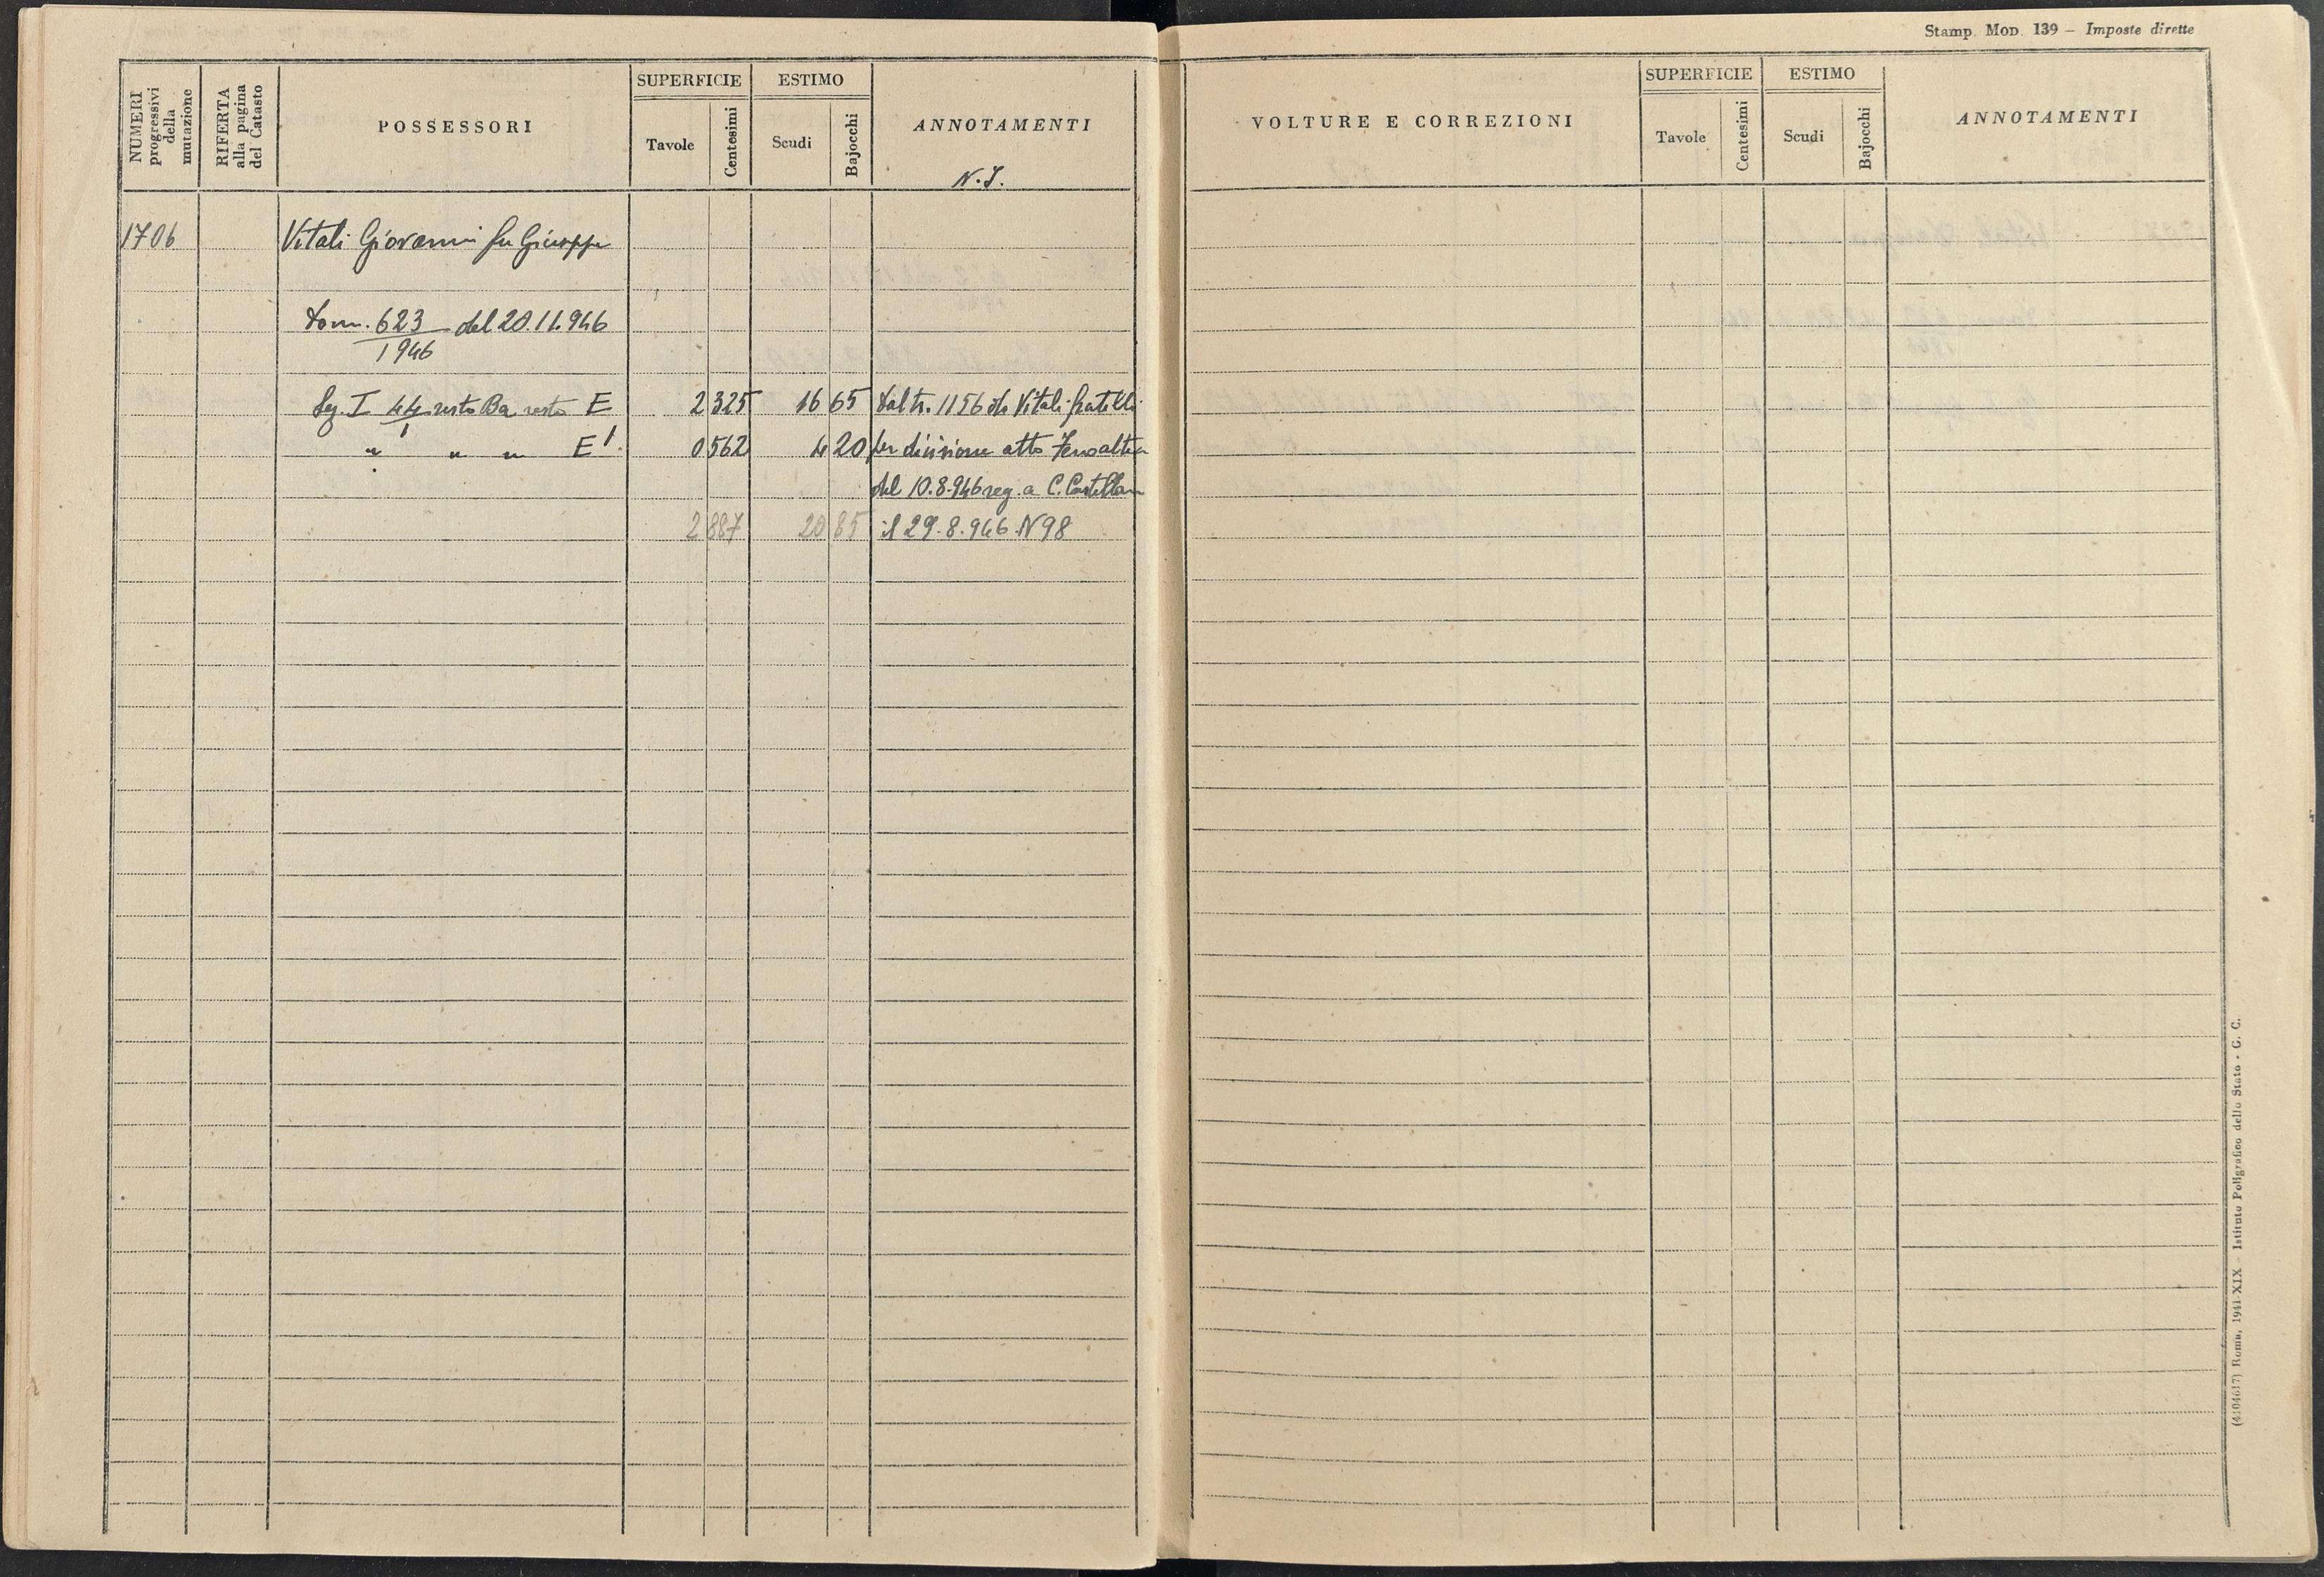 Stamp. Mod. 139 – Imposte dirette
NUMERI progressivi della mutazione
RIFERTA alla pagina del Catasto
POSSESSORI
SUPERFICIE
Tavole
Centesimi
ESTIMO
Scudi
Bajocchi
ANNOTAMENTI
VOLTURE E CORREZIONI
SUPERFICIE
Tavole
Centesimi
ESTIMO
Scudi
Bajocchi
ANNOTAMENTI
1706 Vitali Giovanni fu Giuseppe
Dom. 623/1946 del 20.11.946
Sez. I 44/1 resto Ba resto E 2 325 16 65 Dal tr. 1156 di Vitali fratelli
" " " E' 0 562 4 20 per divisione atto Fenoaltea
del 10.8.946 reg. a C. Castellana
2 887 20 85 il 29.8.946 N 98
Roma, 1941-XIX - Istituto Poligrafico dello Stato - G. C.